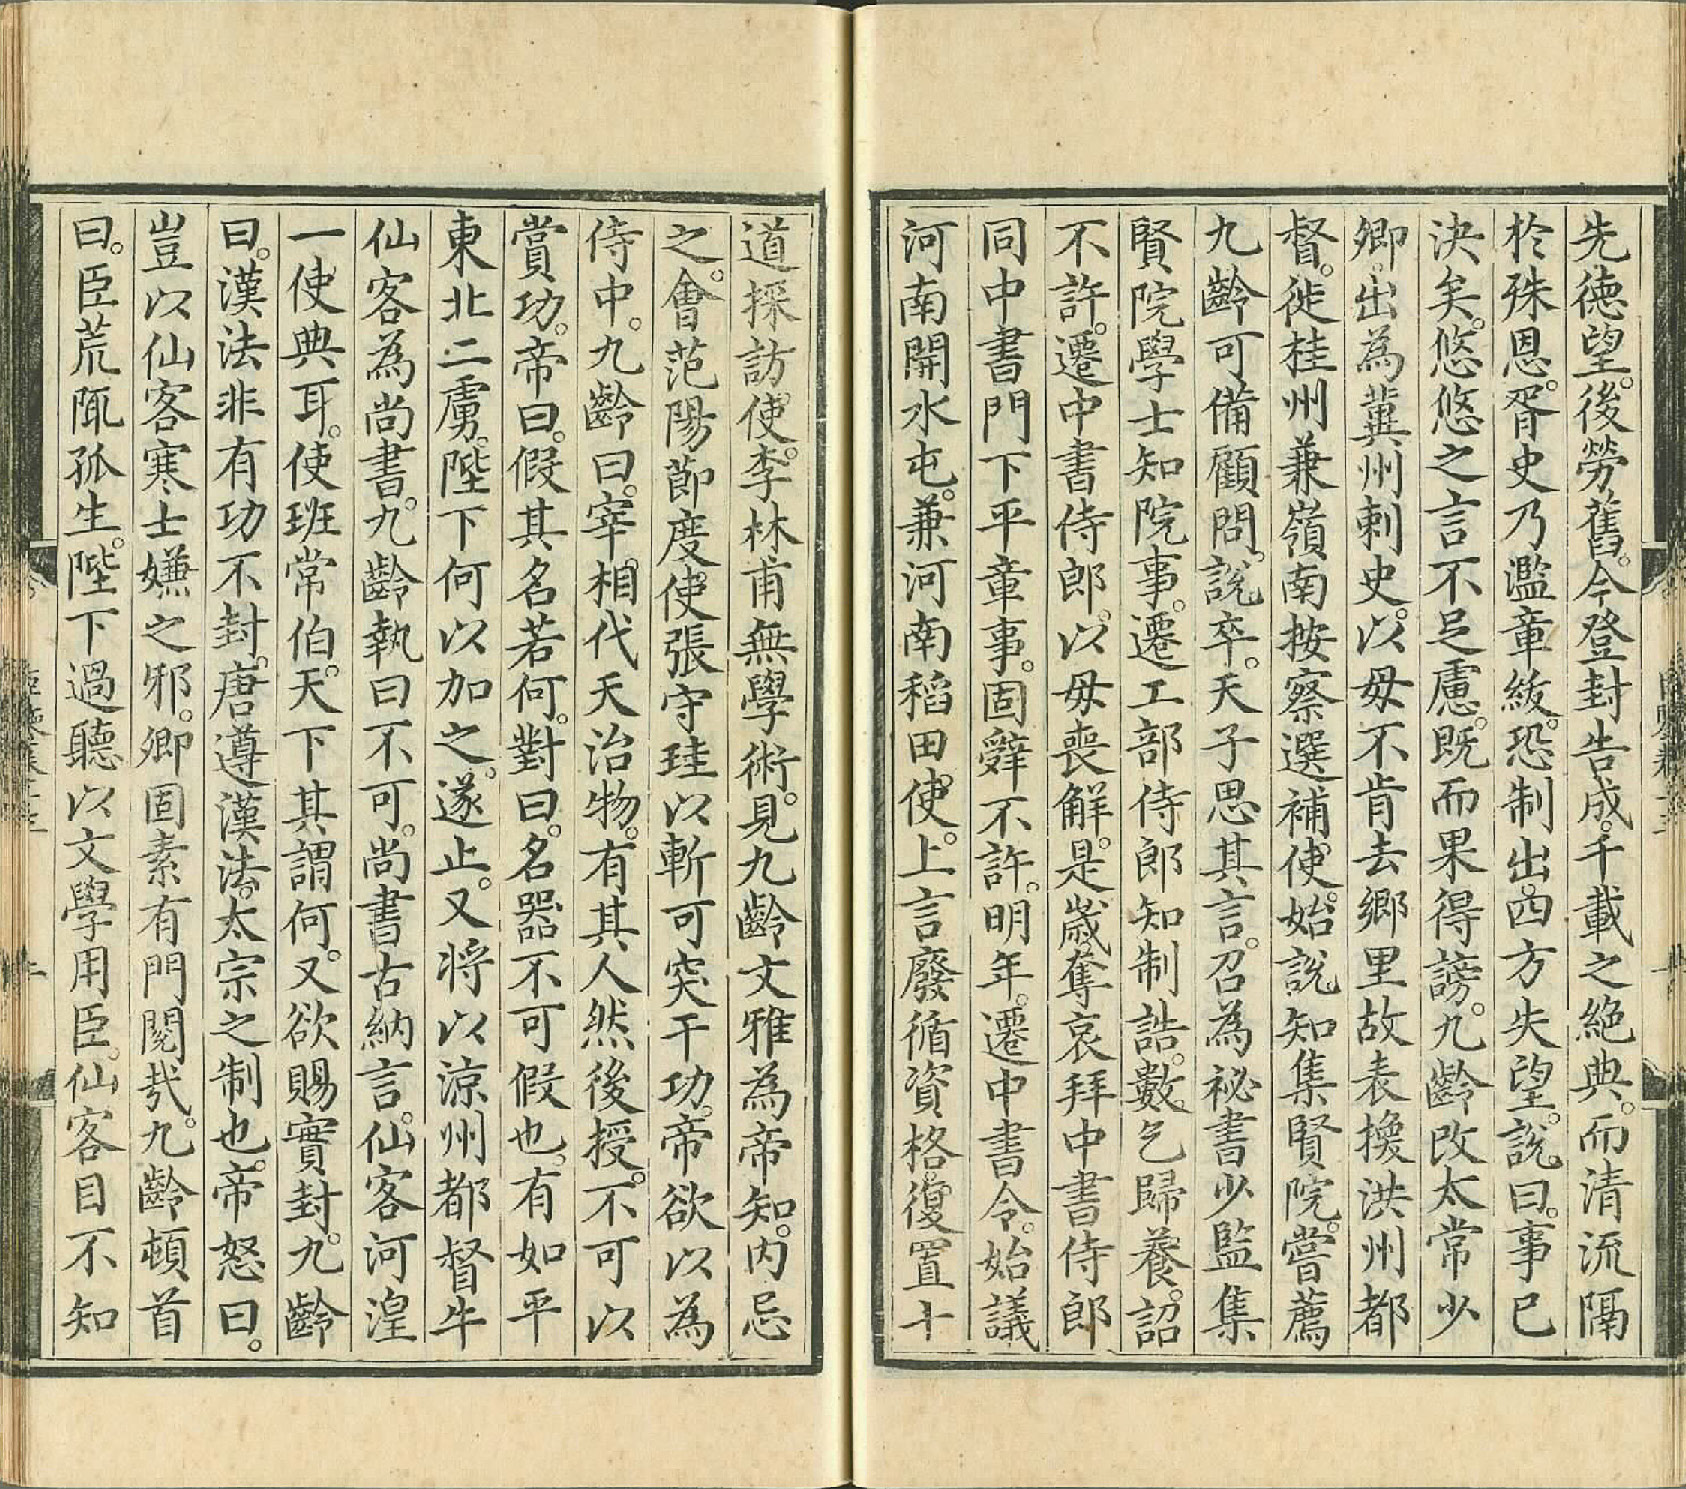 先德望。後勞舊。今登封告成。千載之絕典。而清流隔
於殊恩。胥史乃濫章紱。恐制出。四方失望。說曰。事已
決矣。悠悠之言不足慮。既而果得謗。九齡改太常少
卿。出為冀州刺史。以毋不肯去鄉里故表換洪州都
督。徙桂州兼嶺南按察選補使。始說知集賢院。嘗薦
九齡可備顧問。說卒。天子思其言。召為祕書少監集
賢院學士知院事。遷工部侍郎知制誥。數乞歸養。詔
不許。遷中書侍郎。以毋喪解。是歲奪哀拜中書侍郎
同中書門下平章事。固辭不許。明年。遷中書令。始議
河南開水屯。兼河南稻田使。上言廢循資格。復置十
道採訪使。李林甫無學術。見九齡文雅為帝知。內忌
之。會范陽節度使張守珪以斬可突干功。帝欲以為
侍中。九齡曰。宰相代天治物。有其人然後授。不可以
賞功。帝曰。假其名若何。對曰。名器不可假也。有如平
東北二虜。陛下何以加之。遂止。又將以涼州都督牛
仙客為尚書。九齡執曰不可。尚書古納言。仙客河湟
一使典耳。使班常伯。天下其謂何。又欲賜實封。九齡
曰。漢法非有功不封。唐遵漢法。太宗之制也。帝怒曰。
豈以仙客寒士嫌之邪。卿固素有門閱哉。九齡頓首
曰。臣荒陬孤生。陛下過聽以文學用臣。仙客目不知